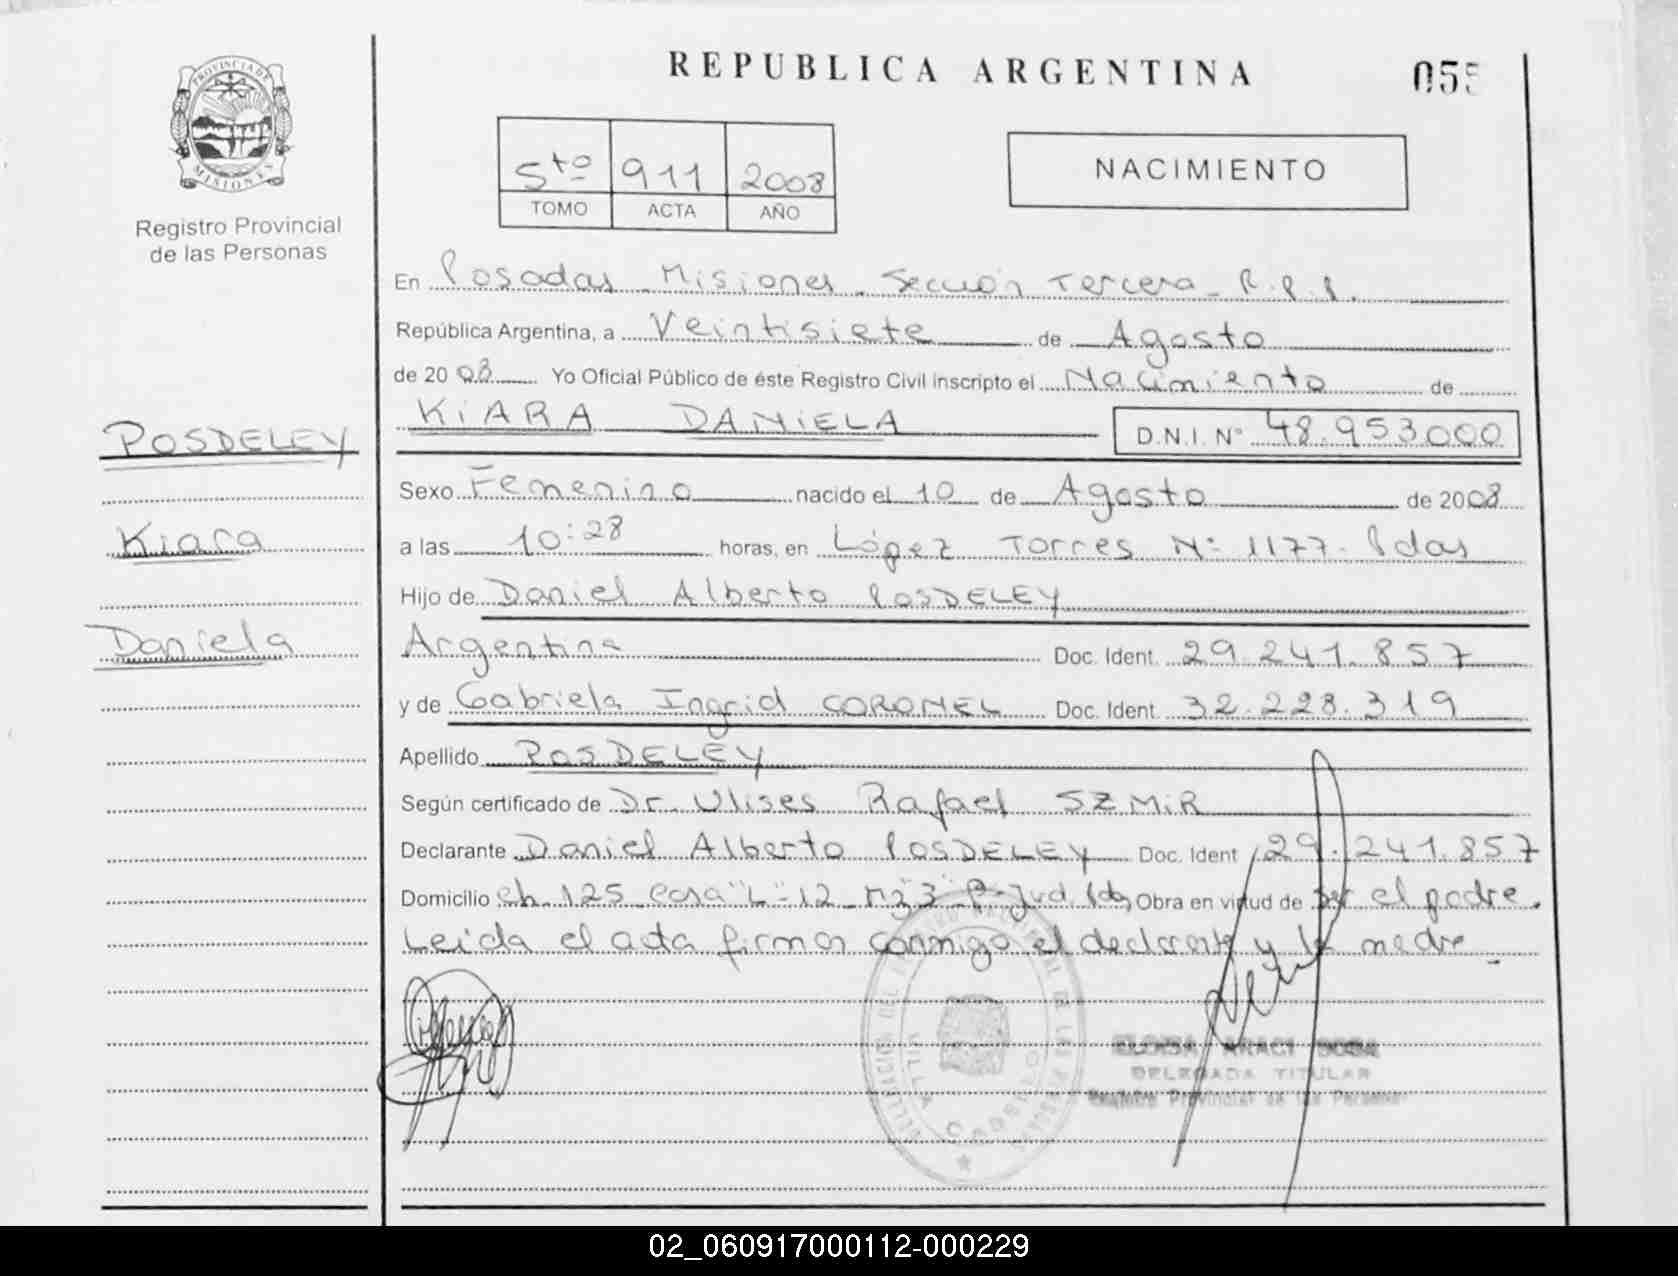 PROVINCIA DE
MISIONES
Registro Provincial
de las Personas
REPUBLICA ARGENTINA
055
5to 911 2008
TOMO ACTA AÑO
NACIMIENTO
En Posadas Misiones Sección Tercera R.P.P.
República Argentina, a Veintisiete de Agosto
de 2008 Yo Oficial Público de éste Registro Civil inscripto el Nacimiento de
KIARA DANIELA D.N.I. N° 48.953.000
POSDELEY
Sexo Femenino nacido el 10 de Agosto de 2008
Kiara
a las 10:28 horas, en López Torres N° 1177. Pdas
Hijo de Daniel Alberto POSDELEY
Daniela
Argentina Doc. Ident. 29.241.857
y de Gabriela Ingrid CORONEL Doc. Ident. 32.228.319
Apellido POSDELEY
Según certificado de Dr. Ulises Rafael SZMIR
Declarante Daniel Alberto POSDELEY Doc. Ident 29.241.857
Domicilio Ch. 125 Casa "L" 12 Mz 3 Obra en virtud de ser el padre.
Leida el acta firman conmigo el declarante y la madre
ELOISA ARACI SOSA
DELEGADA TITULAR
Registro Provincial de las Personas
02_060917000112-000229